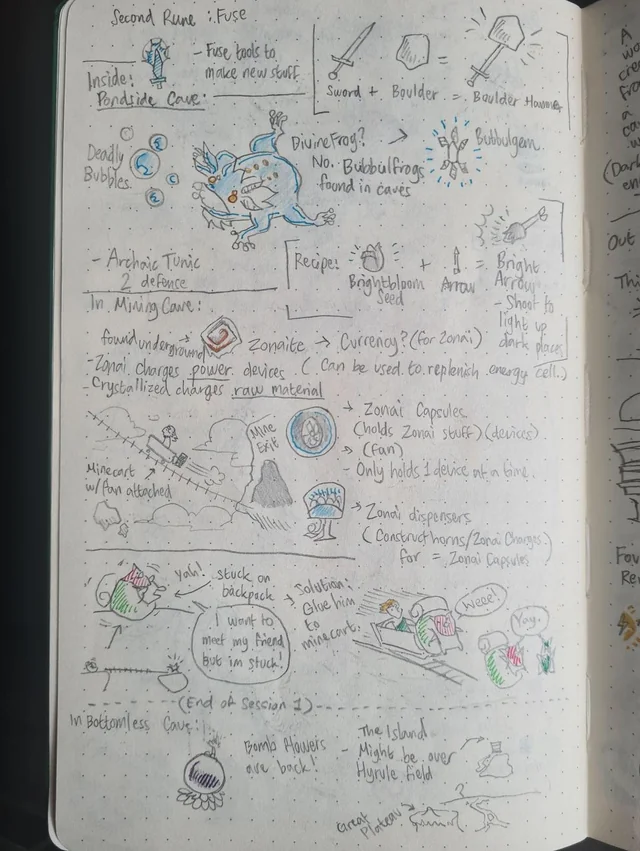 Second Rune : Fuse
- Fuse tools to
make new stuff
Sword + Boulder = Boulder Hammer
Inside:
Pondside Cave:
Deadly
Bubbles
Divine Frog? → Bubbulgem
No. Bubbulfrogs
found in caves
- Archaic Tunic
2 defence
Recipe:
Brightbloom
Seed
+
Arrow
= Bright
Arrow
- Shoot to
light up
dark places
In Mining Cave:
found underground → Zonaite → Currency? (for Zonai)
- Zonai Charges power devices. (Can be used to replenish energy cell.)
- Crystallized charges raw material
Mine
Exit
Minecart
w/ fan attached
→ Zonai Capsules
(holds Zonai stuff) (devices)
→ (fan)
- Only holds 1 device at a time.
→ Zonai dispensers
(Construct horns/Zonai Charges)
for = Zonai Capsules
Yah! stuck on
backpack
I want to
meet my friend
But im stuck!
→ Solution:
Glue him
to
minecart.
Weee!
Yay.
(End of Session 1)
In Bottomless Cave:
Bomb flowers
are back!
- The Island
Might be over
Hyrule field
?
Great
Plateau
A
wo
cre
fro
a
co
w
(Dar
en
Out
Thi
Fo
Re